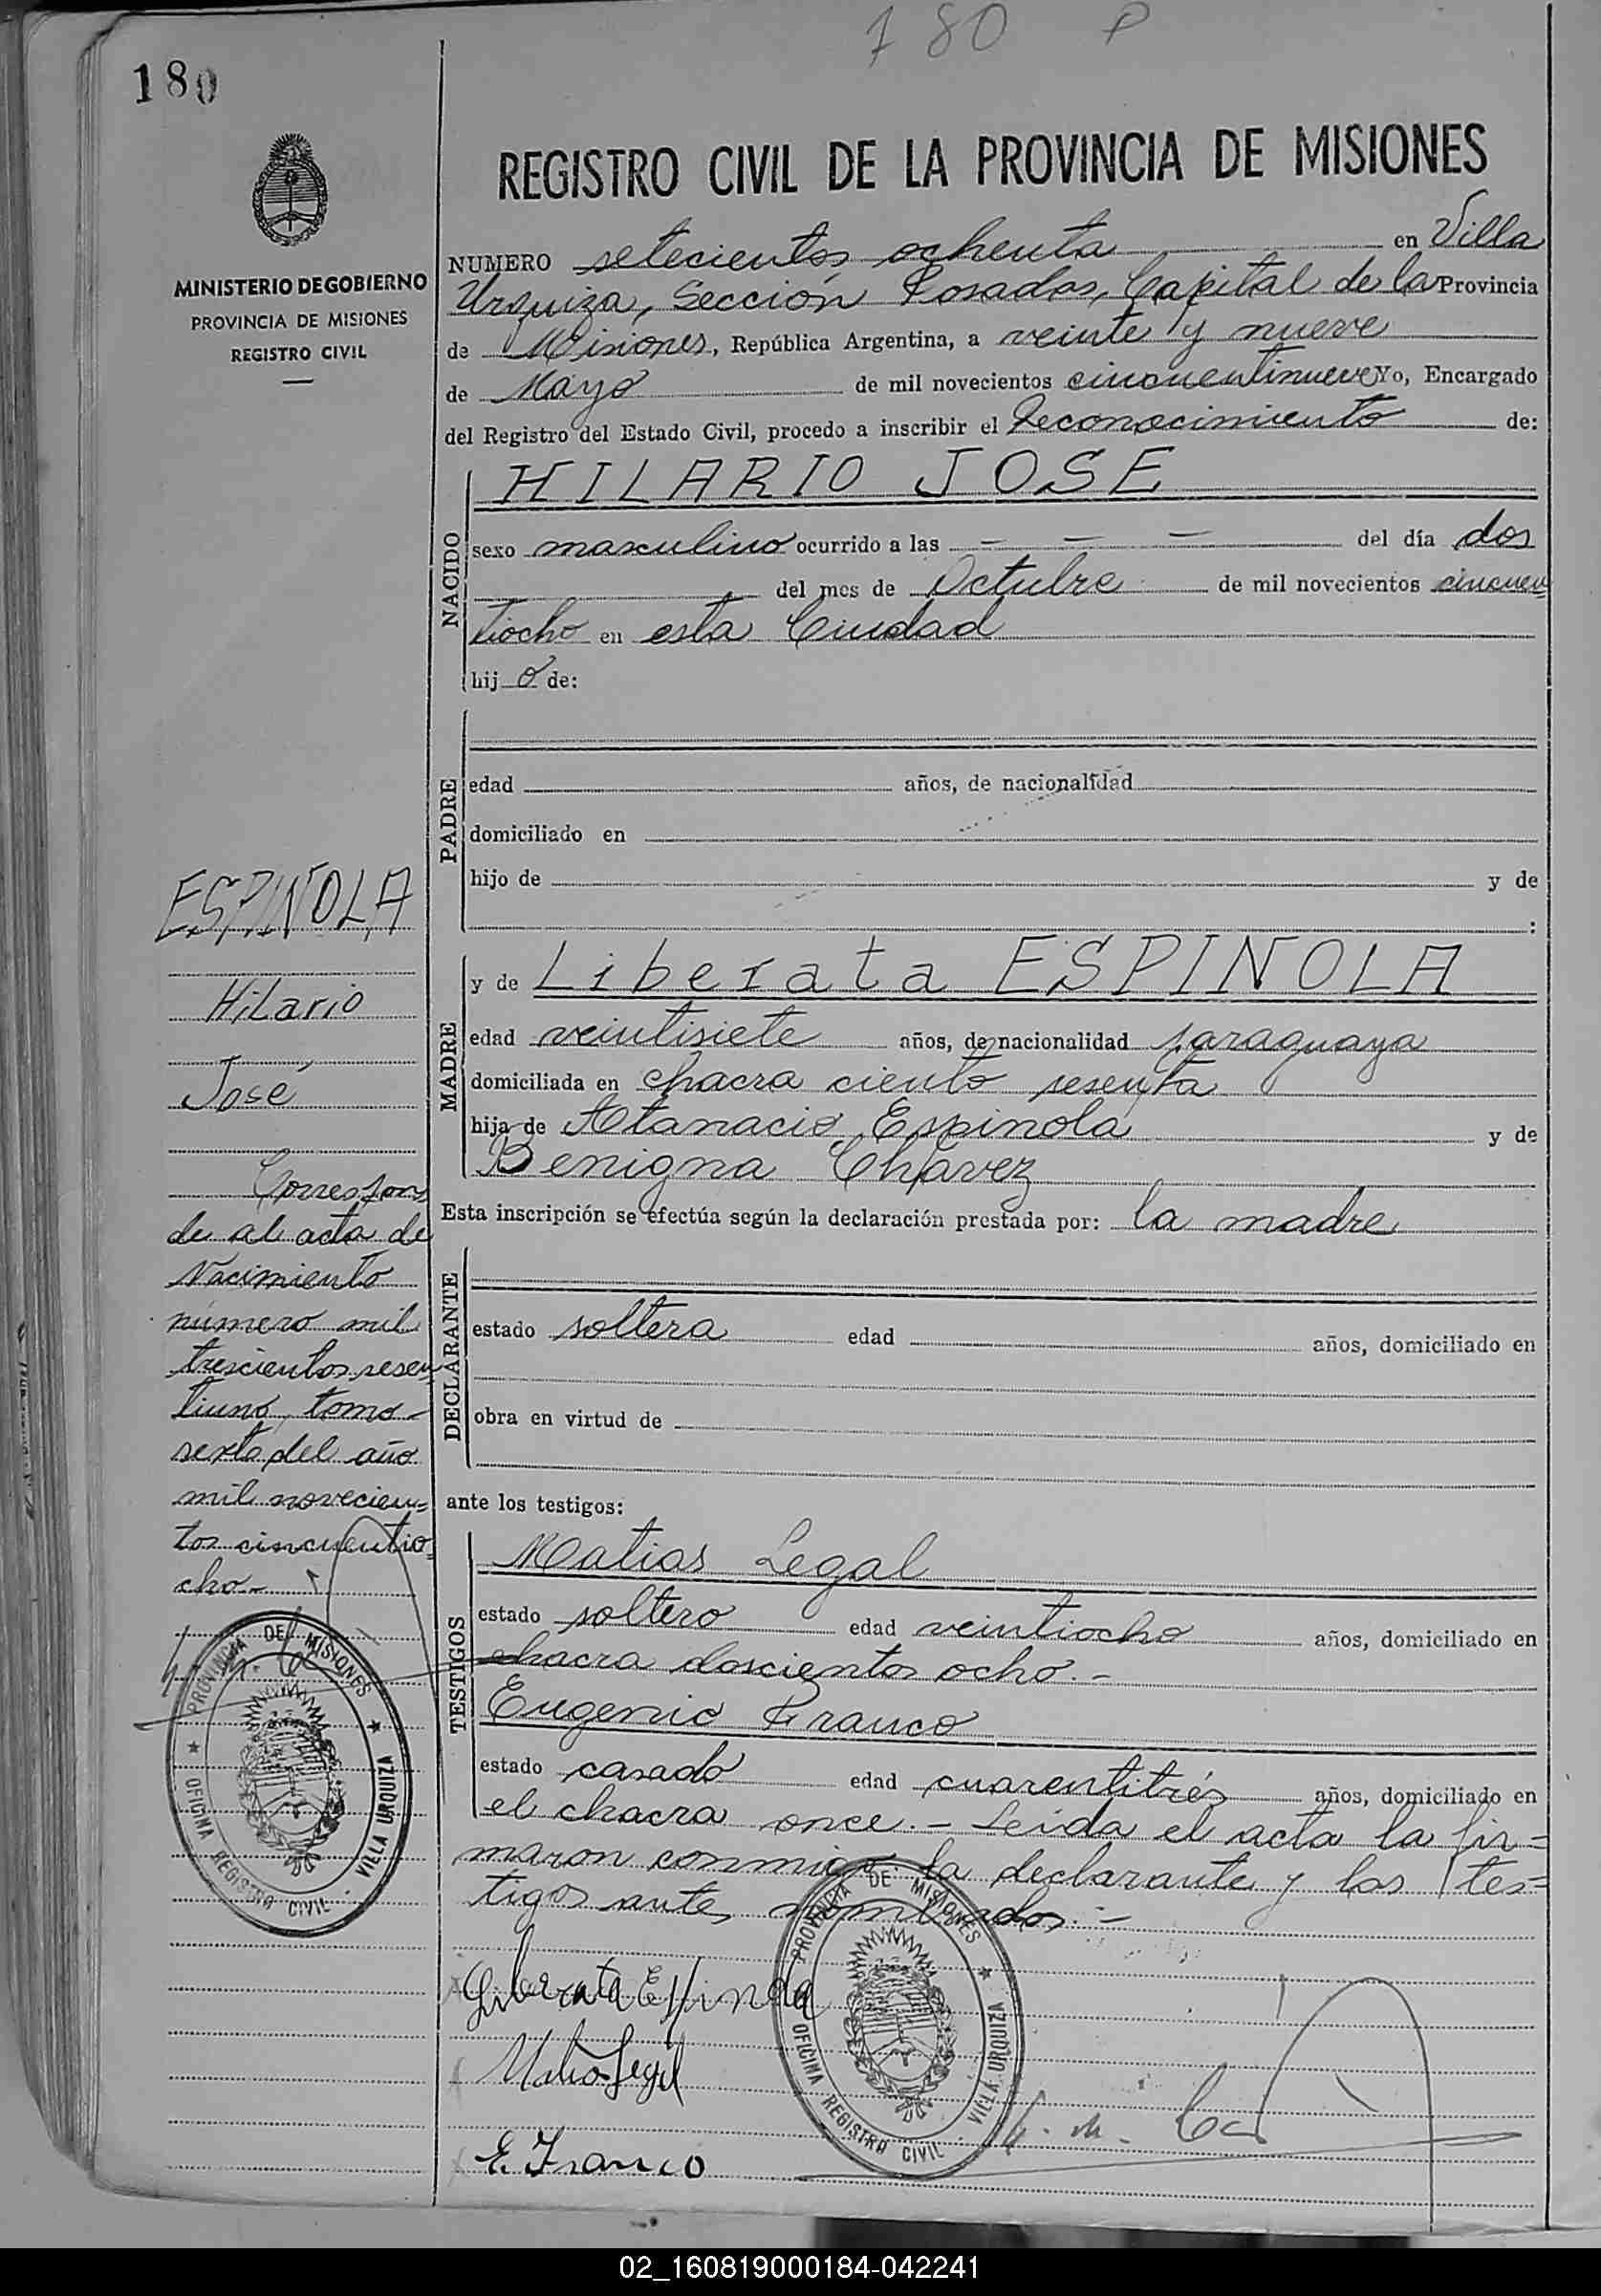 780 P
180
REGISTRO CIVIL DE LA PROVINCIA DE MISIONES
MINISTERIO DE GOBIERNO
PROVINCIA DE MISIONES
REGISTRO CIVIL
NUMERO setecientos ochenta en Villa
Urquiza, Sección Posadas, Capital de la Provincia
de Misiones, República Argentina, a veinte y nueve
de Mayo de mil novecientos cincuentinueve Yo, Encargado
del Registro del Estado Civil, procedo a inscribir el Reconocimiento de:
NACIDO
HILARIO JOSE
sexo masculino ocurrido a las — — — del día dos
del mes de Octubre de mil novecientos cincuen=
tiocho en esta Ciudad
hijo de:
PADRE
edad años, de nacionalidad
domiciliado en
hijo de y de
:
MADRE
y de Liberata ESPINOLA
edad veintisiete años, de nacionalidad paraguaya
domiciliada en chacra ciento sesenta
hija de Atanacio Espinola y de
Benigna Chávez
Esta inscripción se efectúa según la declaración prestada por: la madre
DECLARANTE
estado soltera edad años, domiciliado en
obra en virtud de
ante los testigos:
TESTIGOS
Matias Legal
estado soltero edad veintiocho años, domiciliado en
chacra doscientos ocho.-
Eugenio Franco
estado casado edad cuarentitrés años, domiciliado en
el chacra once.- Leida el acta la fir=
maron conmigo la declarante y los tes=
tigos antes nombrados.-
Liberata Espinola
Matias Legal
E. Franco
PROVINCIA DE MISIONES
OFICINA REGISTRO CIVIL - VILLA URQUIZA
ESPINOLA
Hilario
José
Correspon
de al acta de
Nacimiento
número mil
trescientos sesen
tiuno, tomo
sexto del año
mil novecien=
tos cincuentio=
cho.-
PROVINCIA DE MISIONES
OFICINA REGISTRO CIVIL - VILLA URQUIZA
02_160819000184-042241